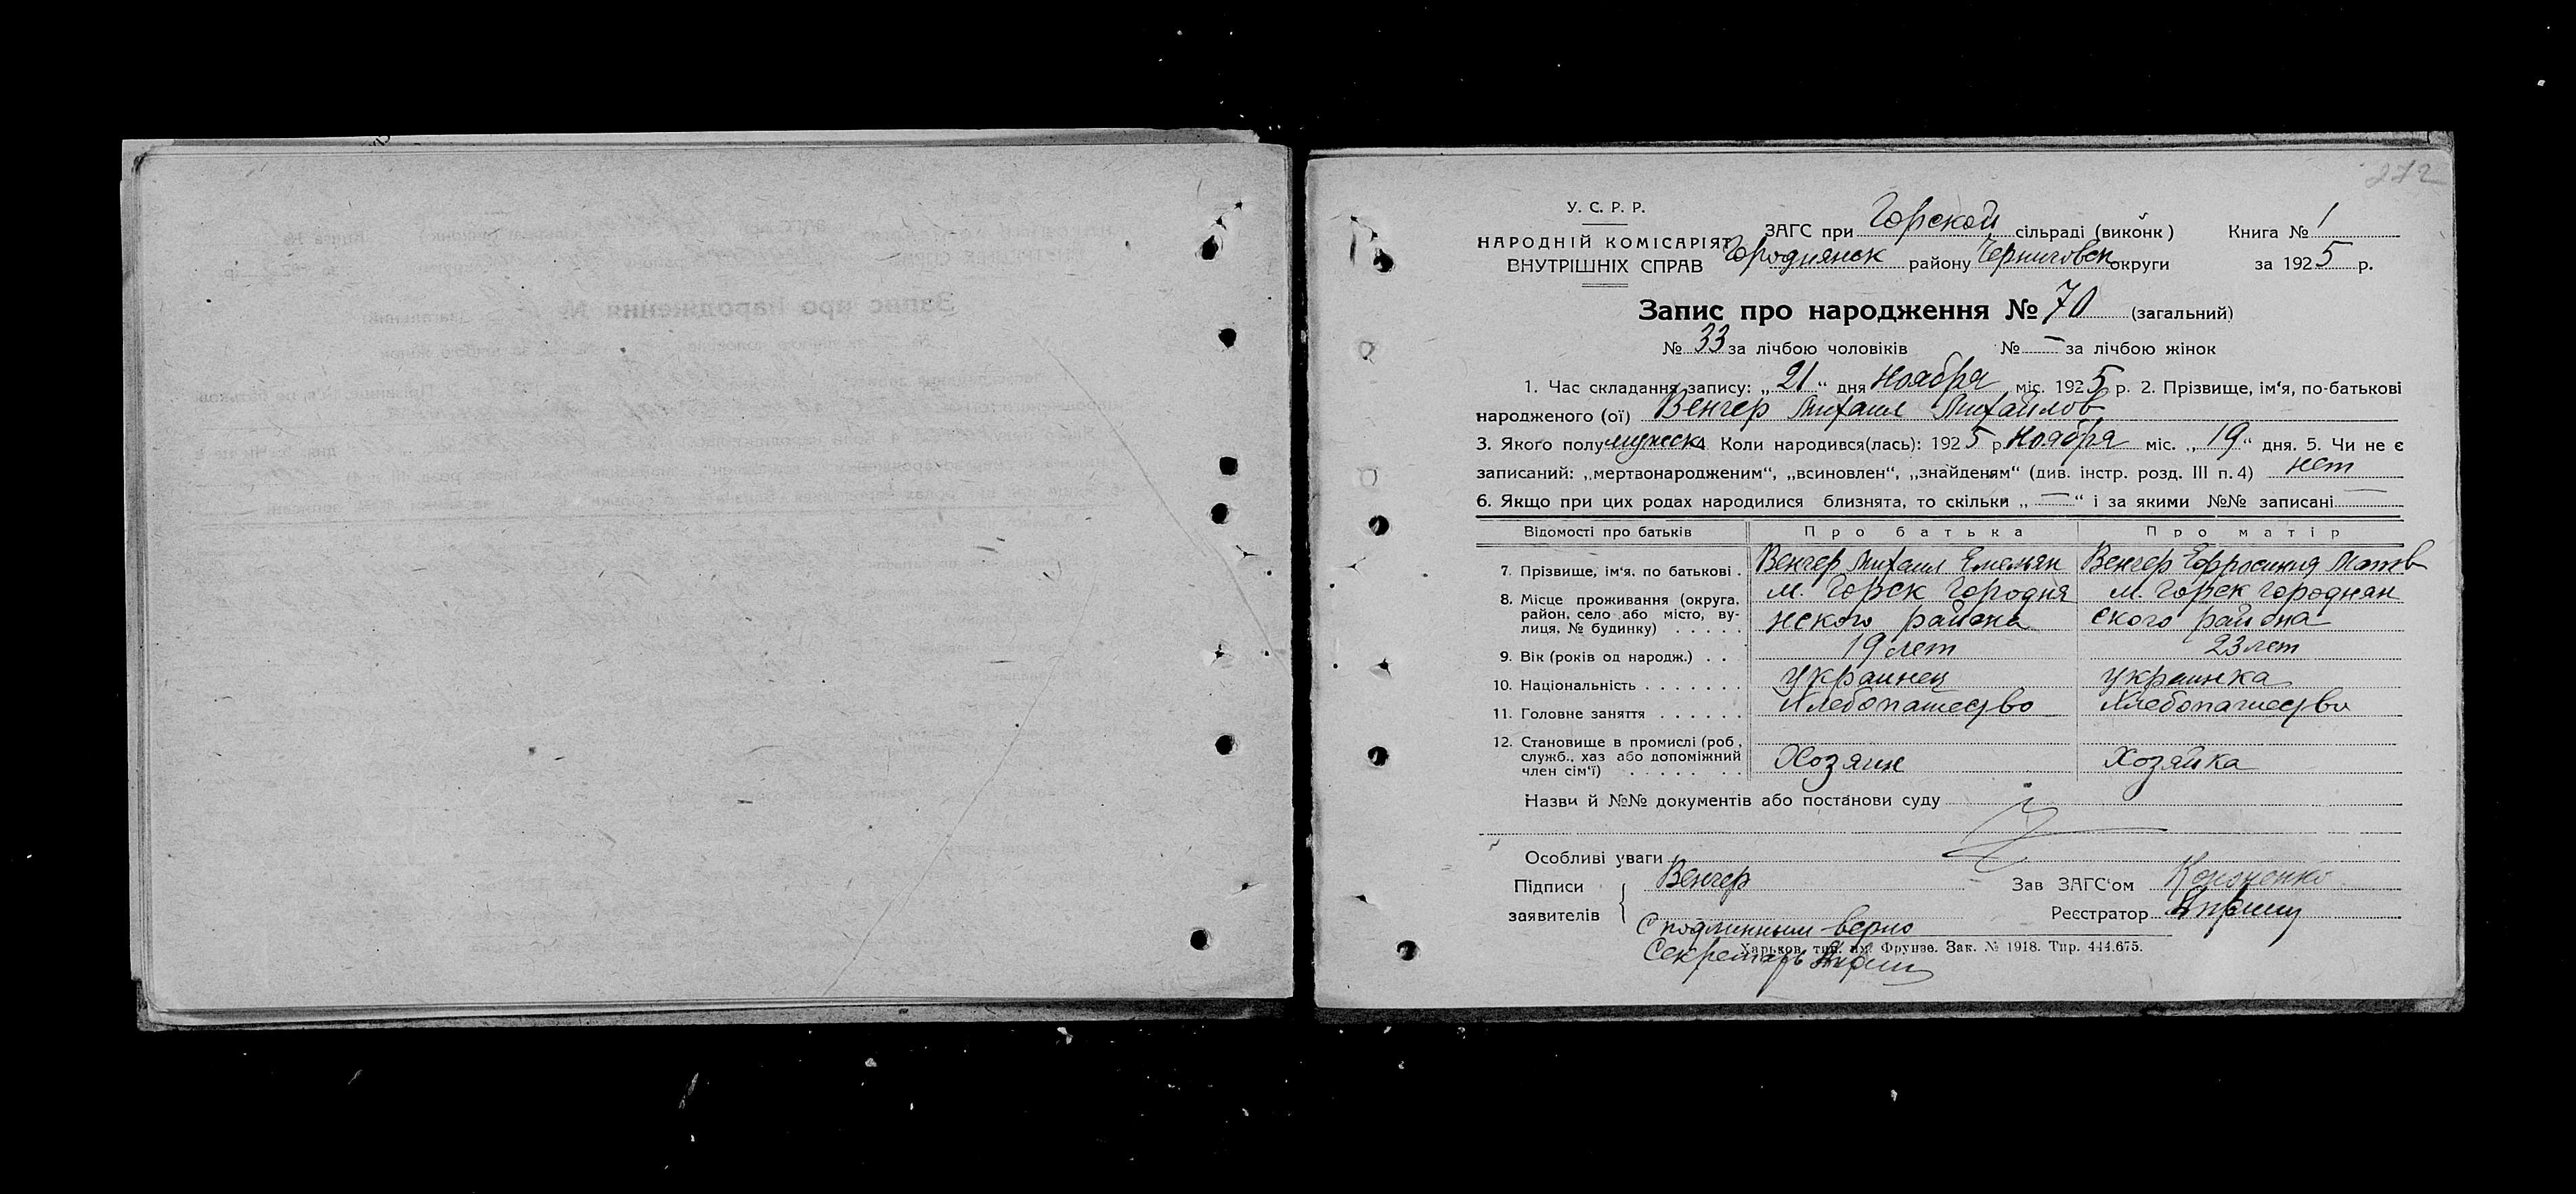 272
У. С. Р. Р.
НАРОДНІЙ КОМІСАРІЯТ
ВНУТРІШНІХ СПРАВ
ЗАГС при Горской сільраді (виконк) Книга № 1
Городнянск району Черниговск округи за 1925 р.
Запис про народження № 70 (загальний)
№ 33 за лічбою чоловіків № — за лічбою жінок
1. Час складання запису: „21“ дня Ноября міс. 1925 р. 2. Прізвище, ім‘я, по-батькові
народженого (ої) Венгер Михаил Михайлов
3. Якого полу мужск 4. Коли народився(лась): 1925 р Ноября міс. „19“ дня. 5. Чи не є
записаний: „мертвонародженим“, „всиновлен“, „знайденям“ (див. інстр. розд. III п. 4) нет
6. Якщо при цих родах народилися близнята, то скільки „—“ і за якими №№ записані —
Відомості про батьків Про батька Про матір
7. Прізвище, ім‘я, по батькові . Венгер Михаил Емельян Венгер Ефросиния Матв
8. Місце проживання (округа, м. Горск Городня м. Горск Городнян
район, село або місто, ву- нского района ского района
лиця, № будинку) . . . . .
9. Вік (років од народж.) . . 19 лет 23 лет
10. Національність . . . . . . . украинец украинка
11. Головне заняття . . . . . . Хлебопашество Хлебопашество
12. Становище в промислі (роб.,
служб., хаз або допоміжний Хозяин Хозяйка
член сім‘ї) . . . . . . .
Назви й №№ документів або постанови суду
Особливі уваги
Підписи Венгер Зав ЗАГС‘ом Кононенко
заявителів Реєстратор
С подлинным верно
Харьков, тип. им. Фрунзе. Зак. № 1918. Тир. 444.675.
Секретарь